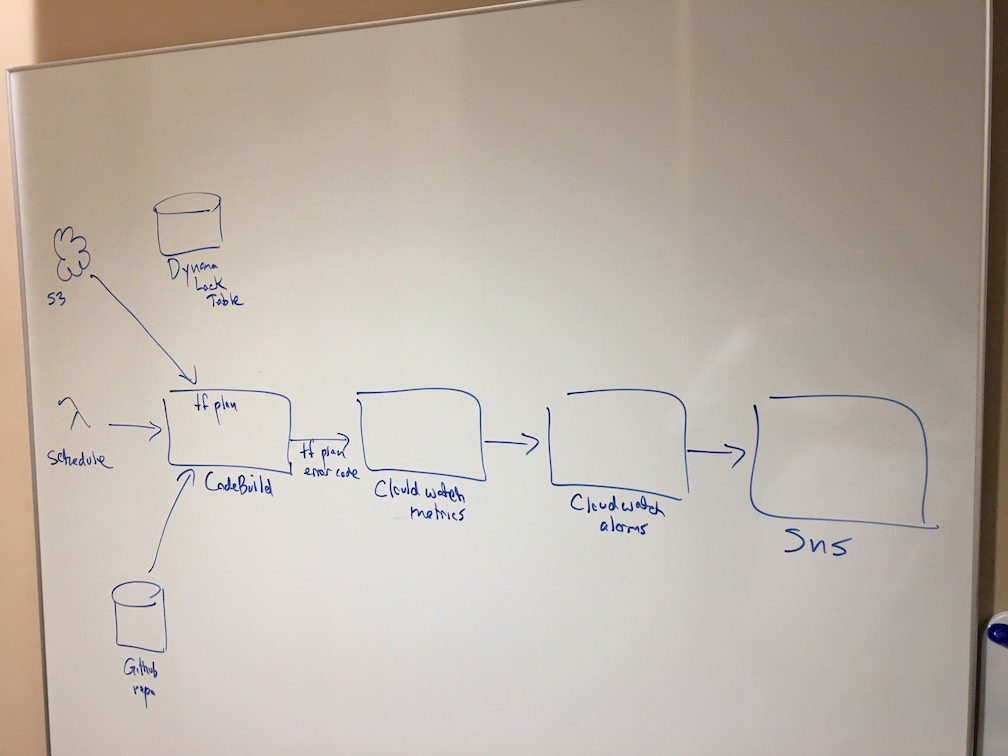 S3
Dynamo
Lock
Table
λ
Schedule
tf plan
CodeBuild
tf plan
error code
Cloud watch
metrics
Cloudwatch
alarms
Sns
Github
repo